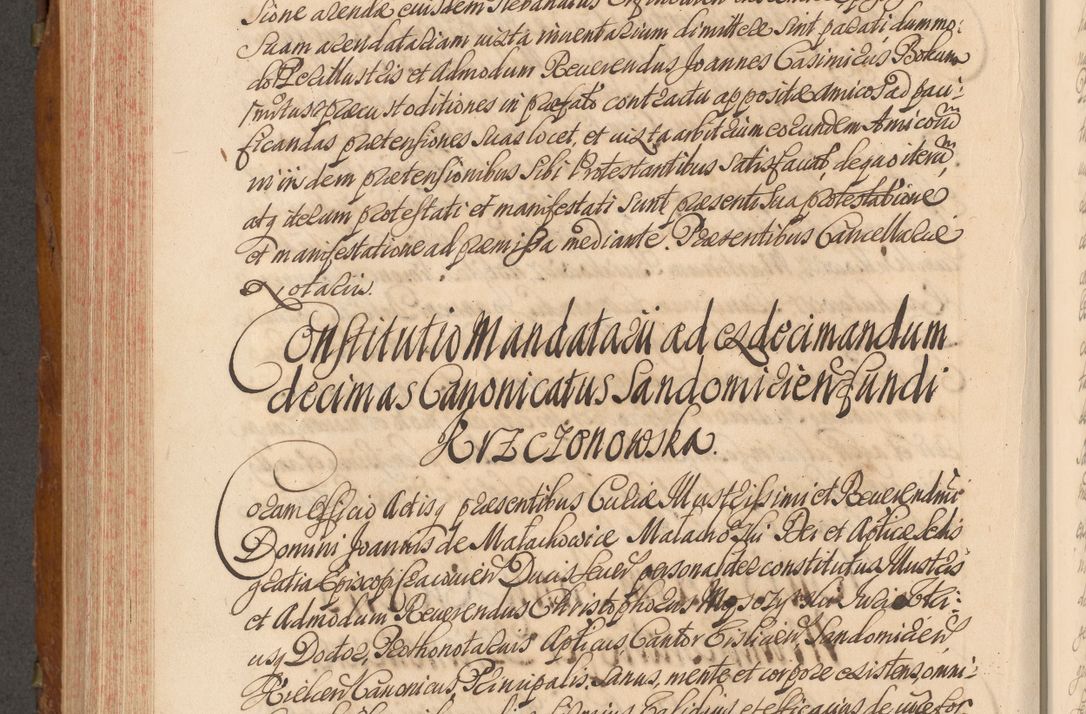 Sione arendæ eiusdem
Suam arendatariam iuxta inventarium dimittere sint parati dummo:
do Perillustris et Admodum Reverendus Joannes Casimirus Bokum
iuxta præcustoditiones in præfato contractu appositæ amicos ad paci:
ficandas prætensiones suas locet, et iuxta arbitrium eorundem Amicorũ
in iisdem prætensionibus sibi Protestantibus satisfaciat, de quo iterũ
atq iterum protestati et manifestati sunt præsenti sua protestatione
et manifestatione ad præmissa mediante. Præsentibus Cancellariæ
Notariis.
Constitutio Mandatarii ad exdecimandum
decimas Canonicatus Sandomirien fundi
Krzczonowska.
Coram Officio Actisq præsentibus Curiæ Illustrissimi et Reverendmi
Domini Joannis de Małachowice Małachoski Dei et Aplicæ Sedis
gratia Episcopi Cracovien Ducis Severi personaliter constitutus Illustris
et Admodum Reverendus Christophorus Juri Utri:
usq Doctor, Prothonotarius Aplicus, Cantor Sandomirien
Kielcen Canonicus, Principalis. Sanus, mente et corpore existens, omni: